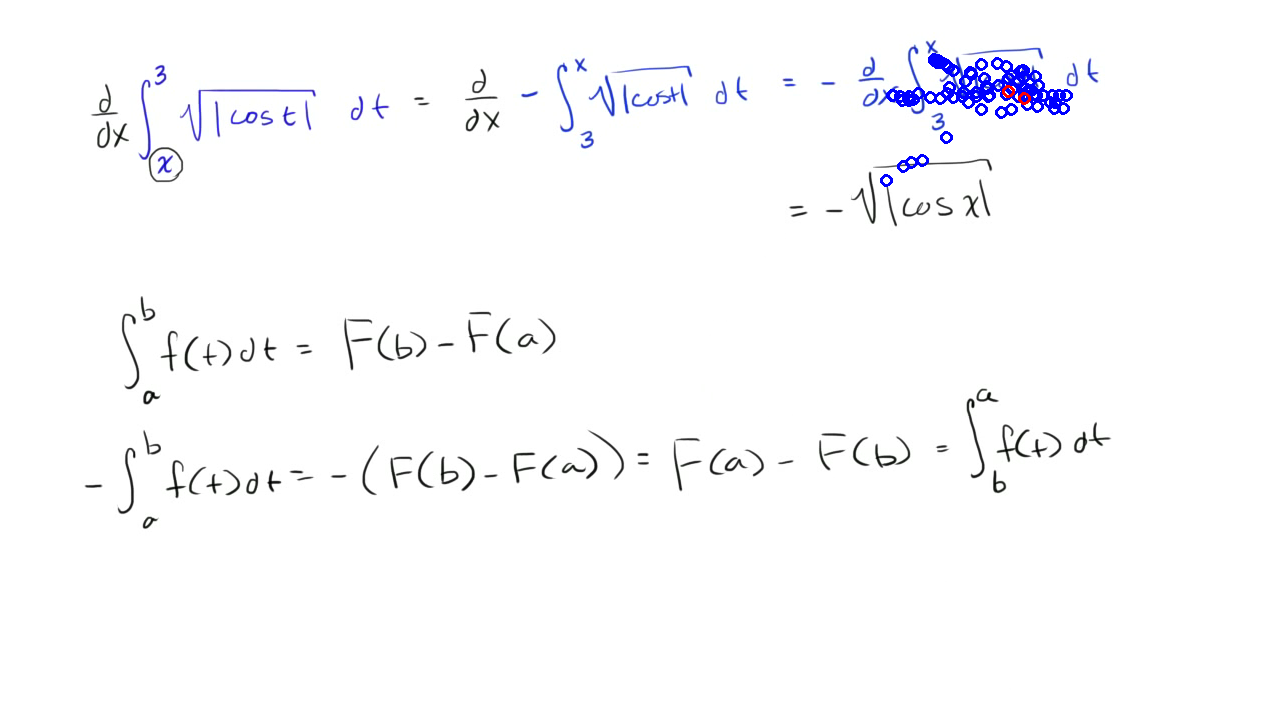 d/dx ∫_x^3 √|cos t| dt = d/dx - ∫_3^x √|cos t| dt = - d/dx ∫_3^x √ dt
= - √|cos x|
∫_a^b f(t) dt = F(b) - F(a)
- ∫_a^b f(t) dt = - (F(b) - F(a)) = F(a) - F(b) = ∫_b^a f(t) dt